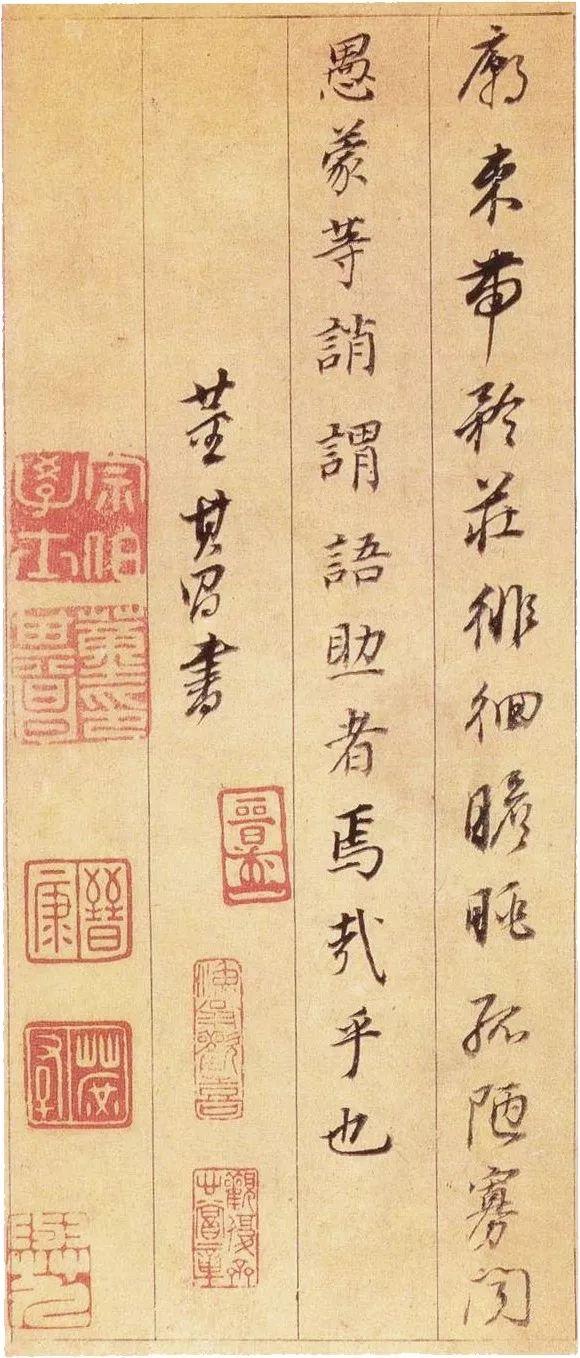 廟束帶矜莊徘徊瞻眺孤陋寡聞
愚蒙等誚謂語助者焉哉乎也
董其昌書
宗伯學士